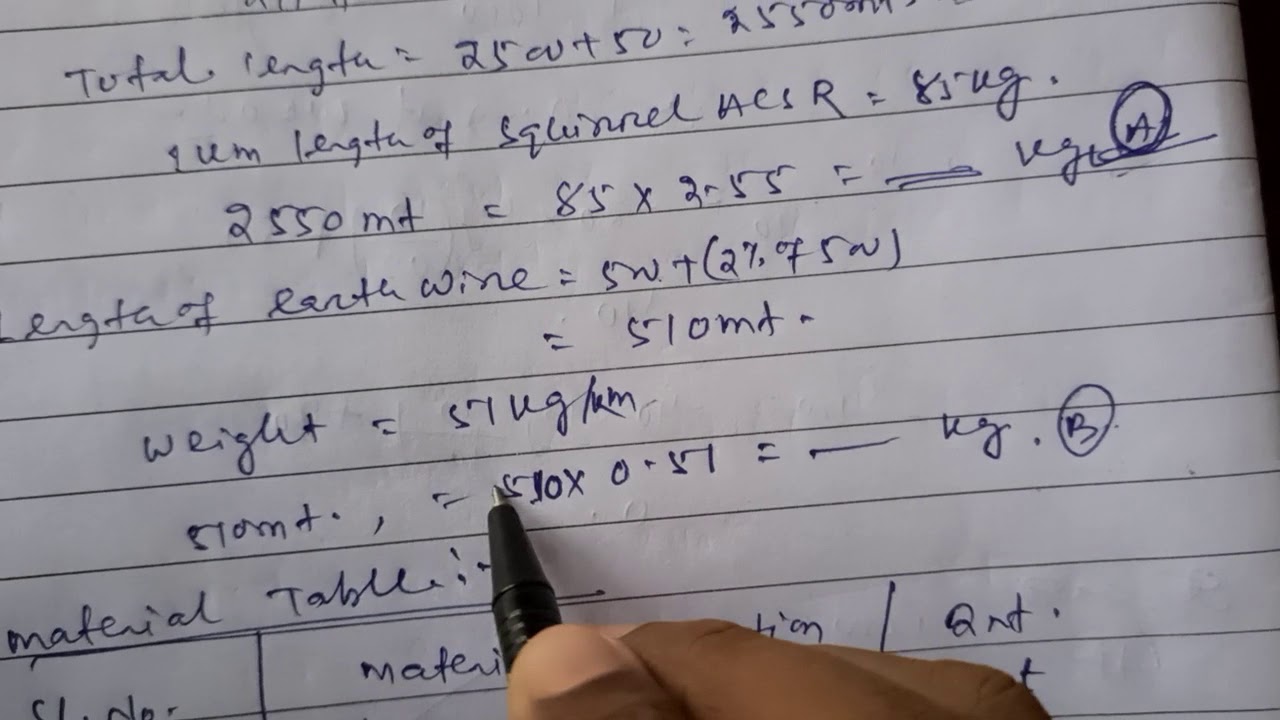 Total length = 2500 + 50 = 2550mt.
1 km length of Squirrel ACSR = 85 kg.
2550 mt = 85 x 2.55 = — kg. (A)
Length of earth wire = 500 + (2% of 500)
= 510mt.
Weight = 57 kg/km
510mt., = 510x 0.57 = — kg. (B)
material Table :-
materi tion Qnt.
Sl. No. t